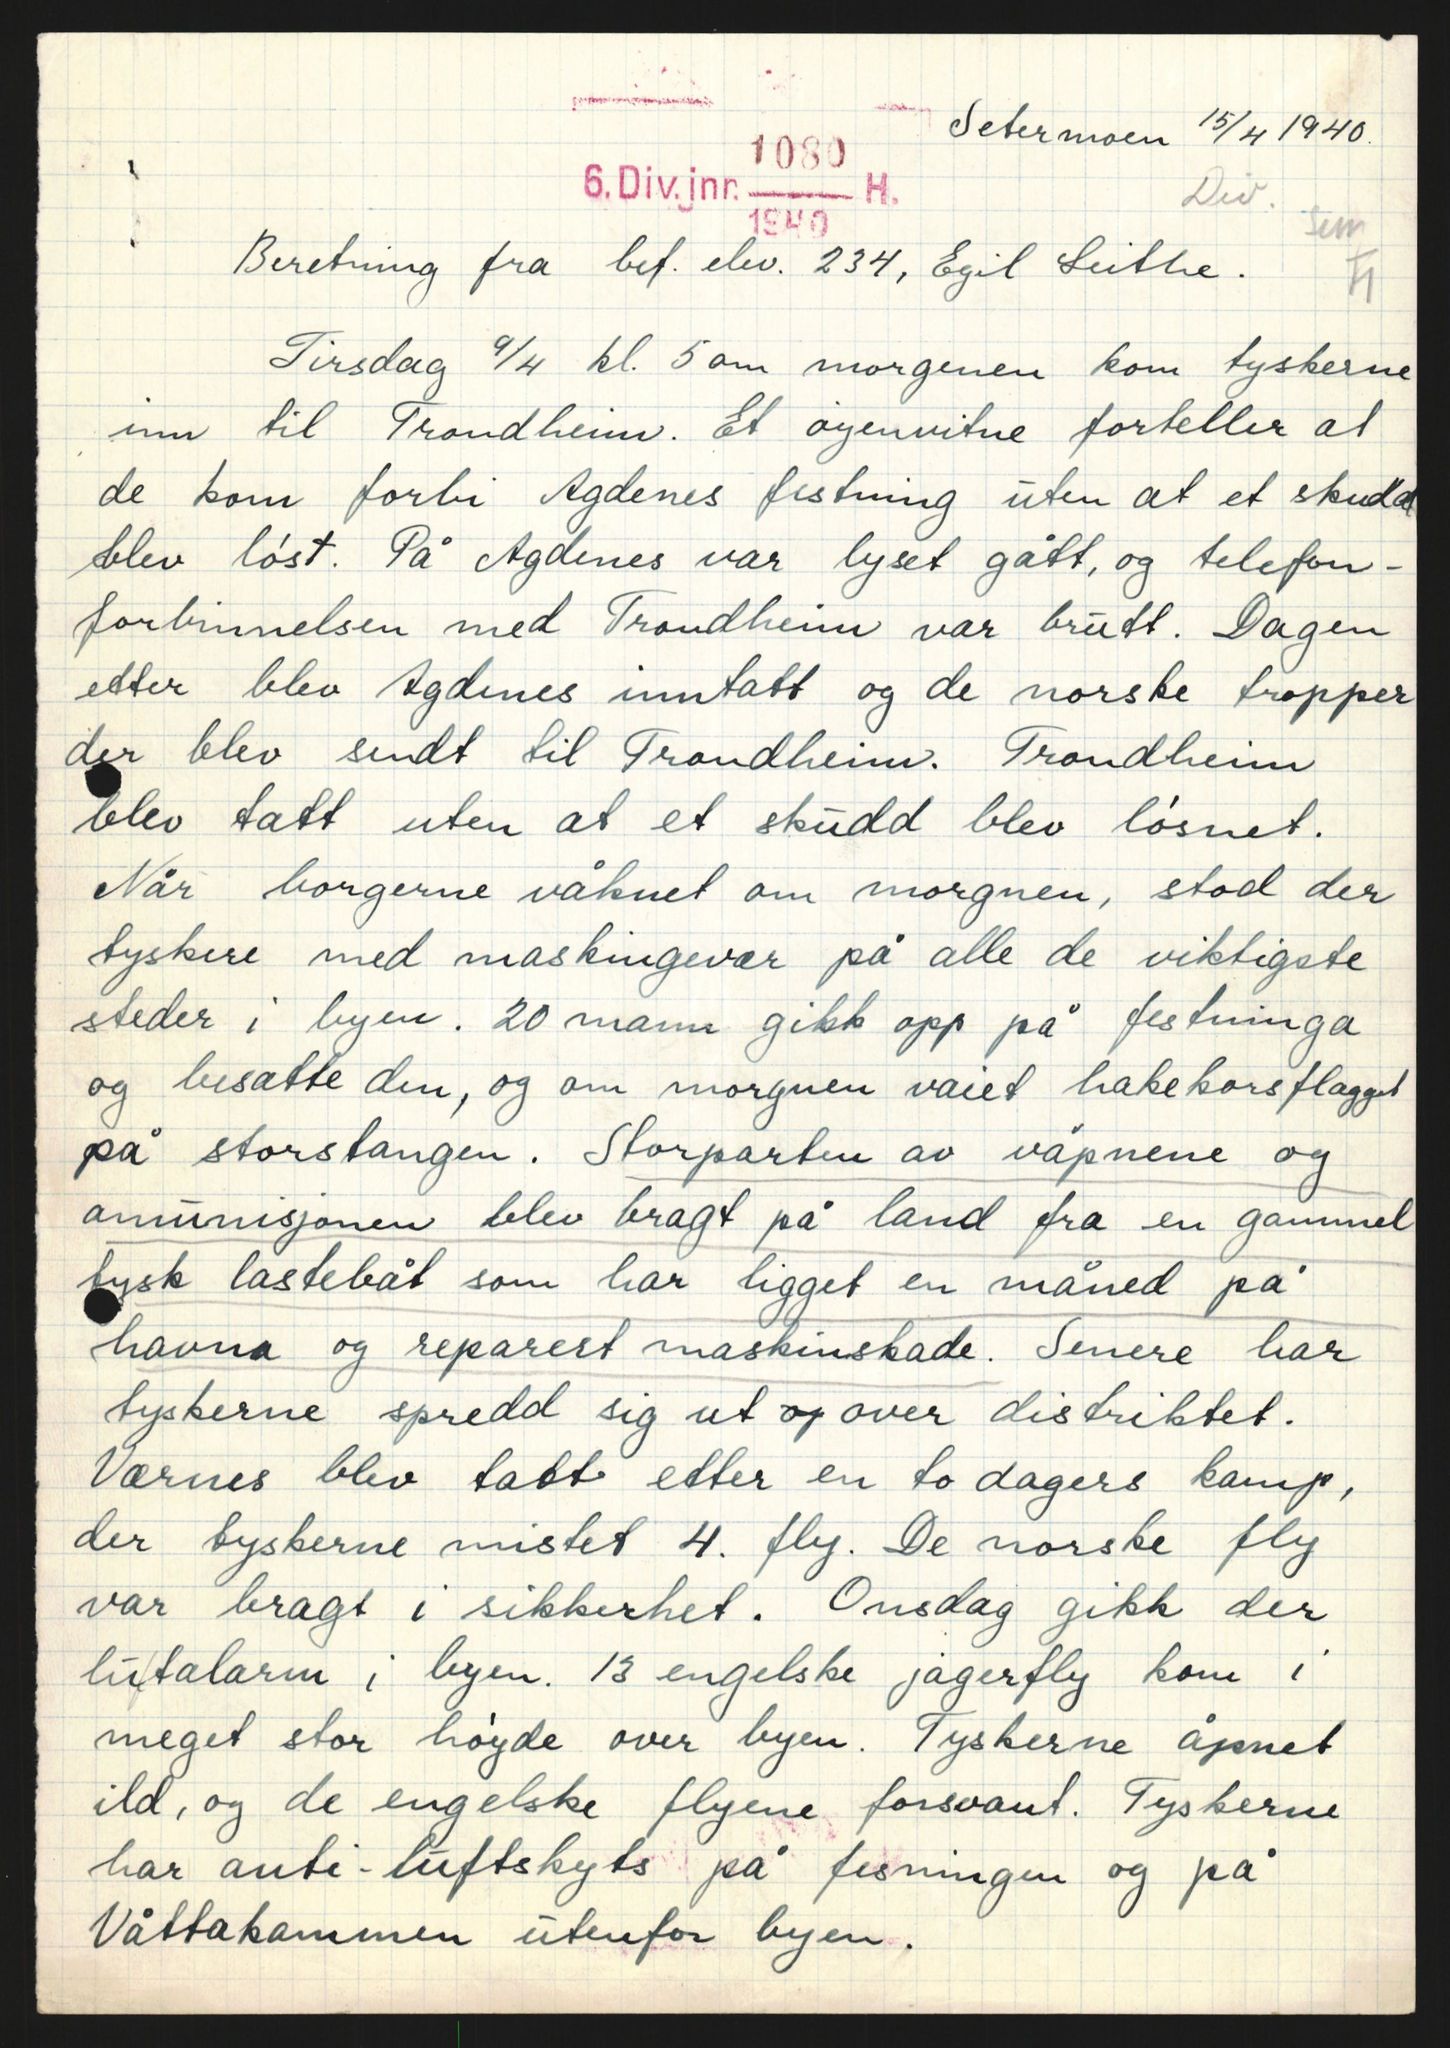 Setermoen 15/4 1940.
1080
6. Div. jnr. H.
1940
Div.
Beretning fra bef. elev. 234, Egil Leithe.
Tirsdag 9/4 kl. 5 om morgenen kom tyskerne
inn til Trondheim. Et øyenvitne forteller at
de kom forbi Agdenes festning uten at et skudd
blev løst. På Agdenes var lyset gått, og telefon-
forbinnelsen med Trondheim var brutt. Dagen
etter blev Agdenes inntatt og de norske tropper
der blev sendt til Trondheim. Trondheim
blev tatt uten at et skudd blev løsnet.
Når borgerne våknet om morgnen, stod der
tyskere med maskingevær på alle de viktigste
steder i byen. 20 mann gikk opp på festninga
og besatte den, og om morgnen vaiet hakekorsflagget
på storstangen. Storparten av våpnene og
amunisjonen blev bragt på land fra en gammel
tysk lastebåt som har ligget en måned på
havna og reparert maskinskade. Senere har
tyskerne spredd sig ut og over distriktet.
Værnes blev tatt etter en to dagers kamp,
der tyskerne mistet 4. fly. De norske fly
var bragt i sikkerhet. Onsdag gikk der
lutalarm i byen. 13 engelske jagerfly kom i
meget stor høyde over byen. Tyskerne åpnet
ild, og de engelske flyene forsvant. Tyskerne
har anti-luftskyts på fesningen og på
Våttakammen utenfor byen.